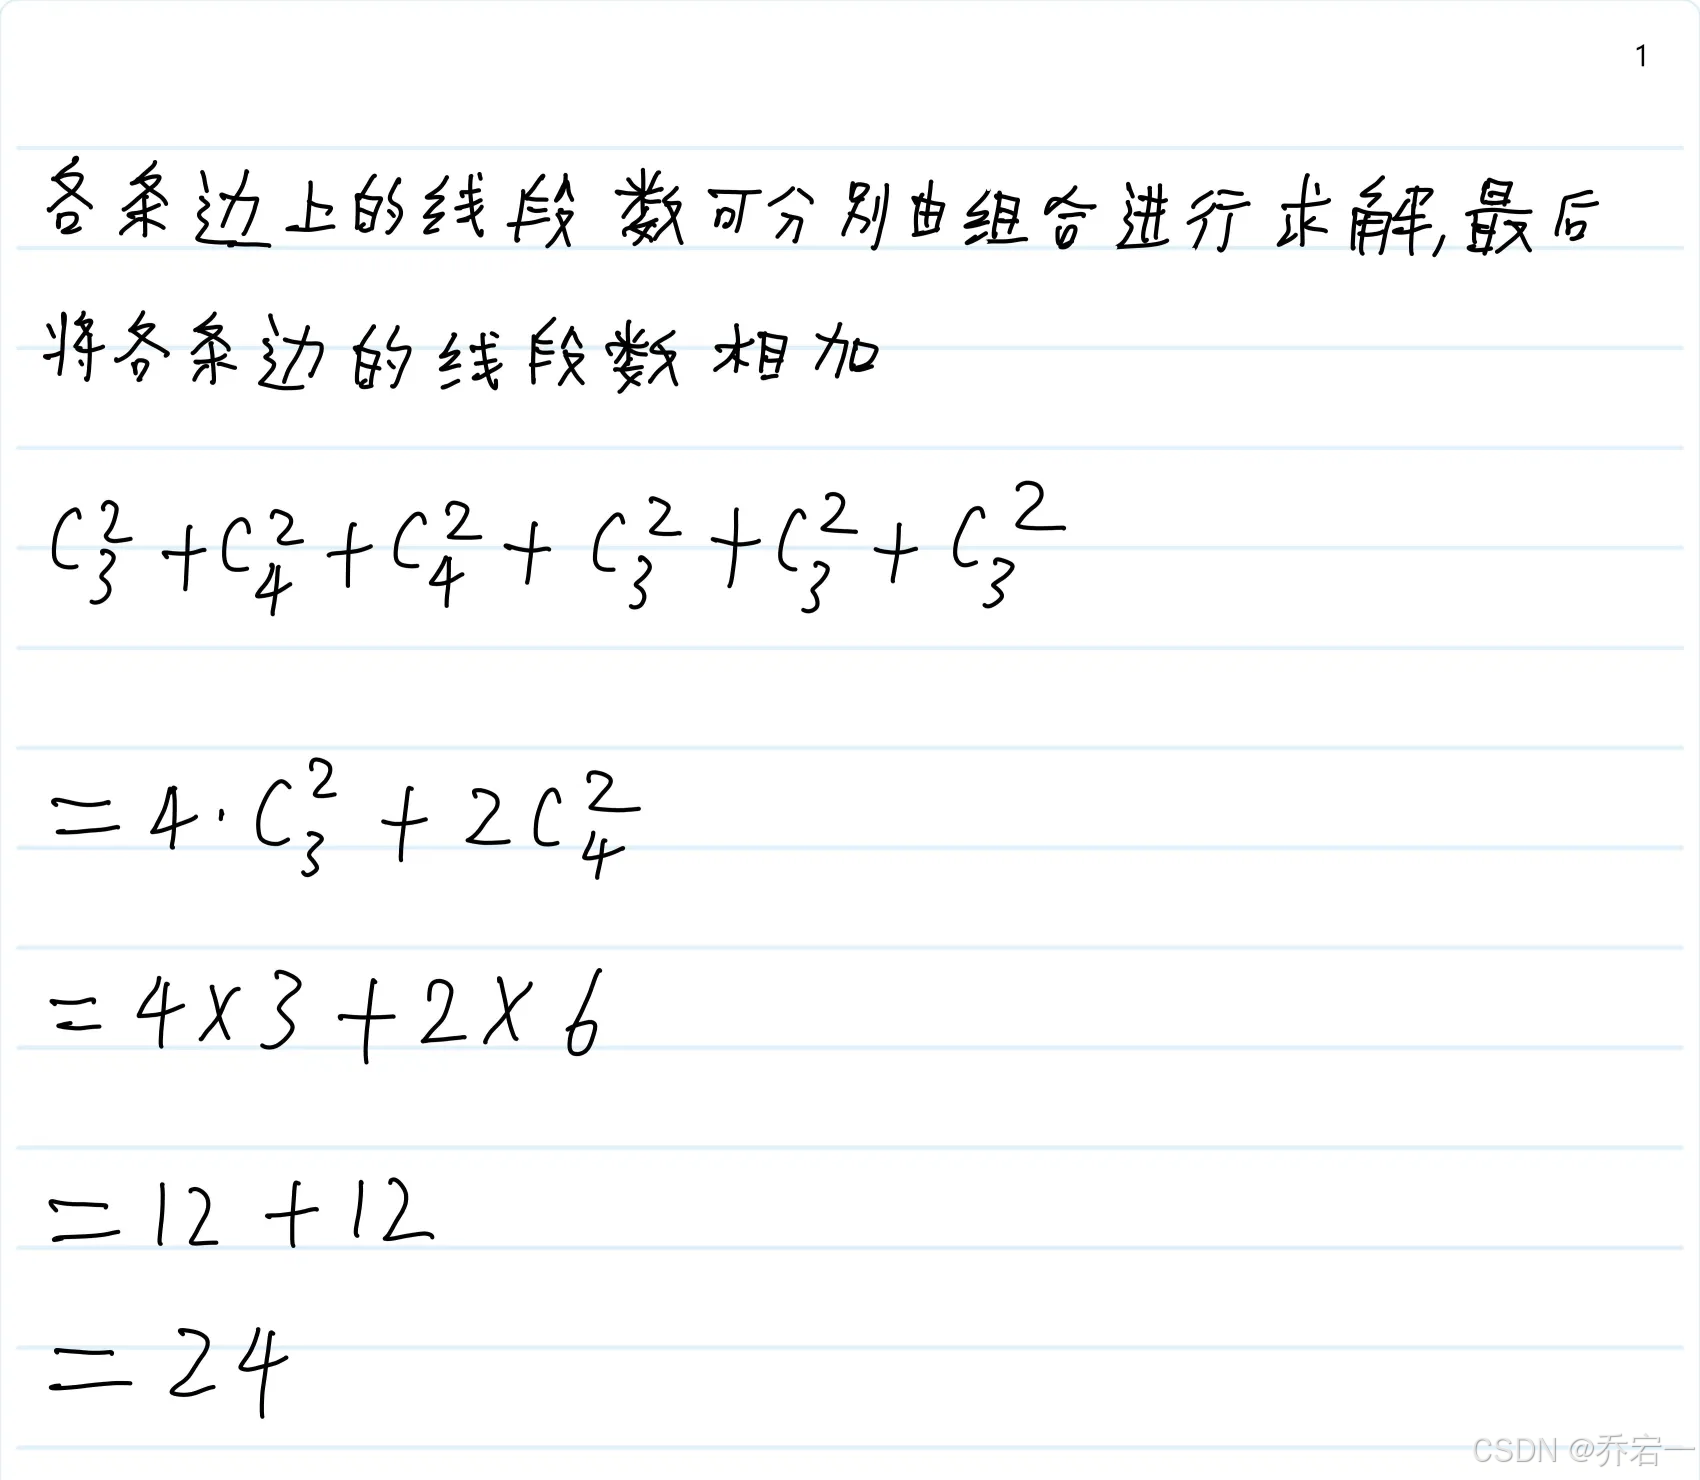 1
各条边上的线段数可分别由组合进行求解,最后
将各条边的线段数相加
C₃² + C₄² + C₄² + C₃² + C₃² + C₃²
= 4 · C₃² + 2C₄²
= 4 × 3 + 2 × 6
= 12 + 12
= 24
CSDN @乔宕一